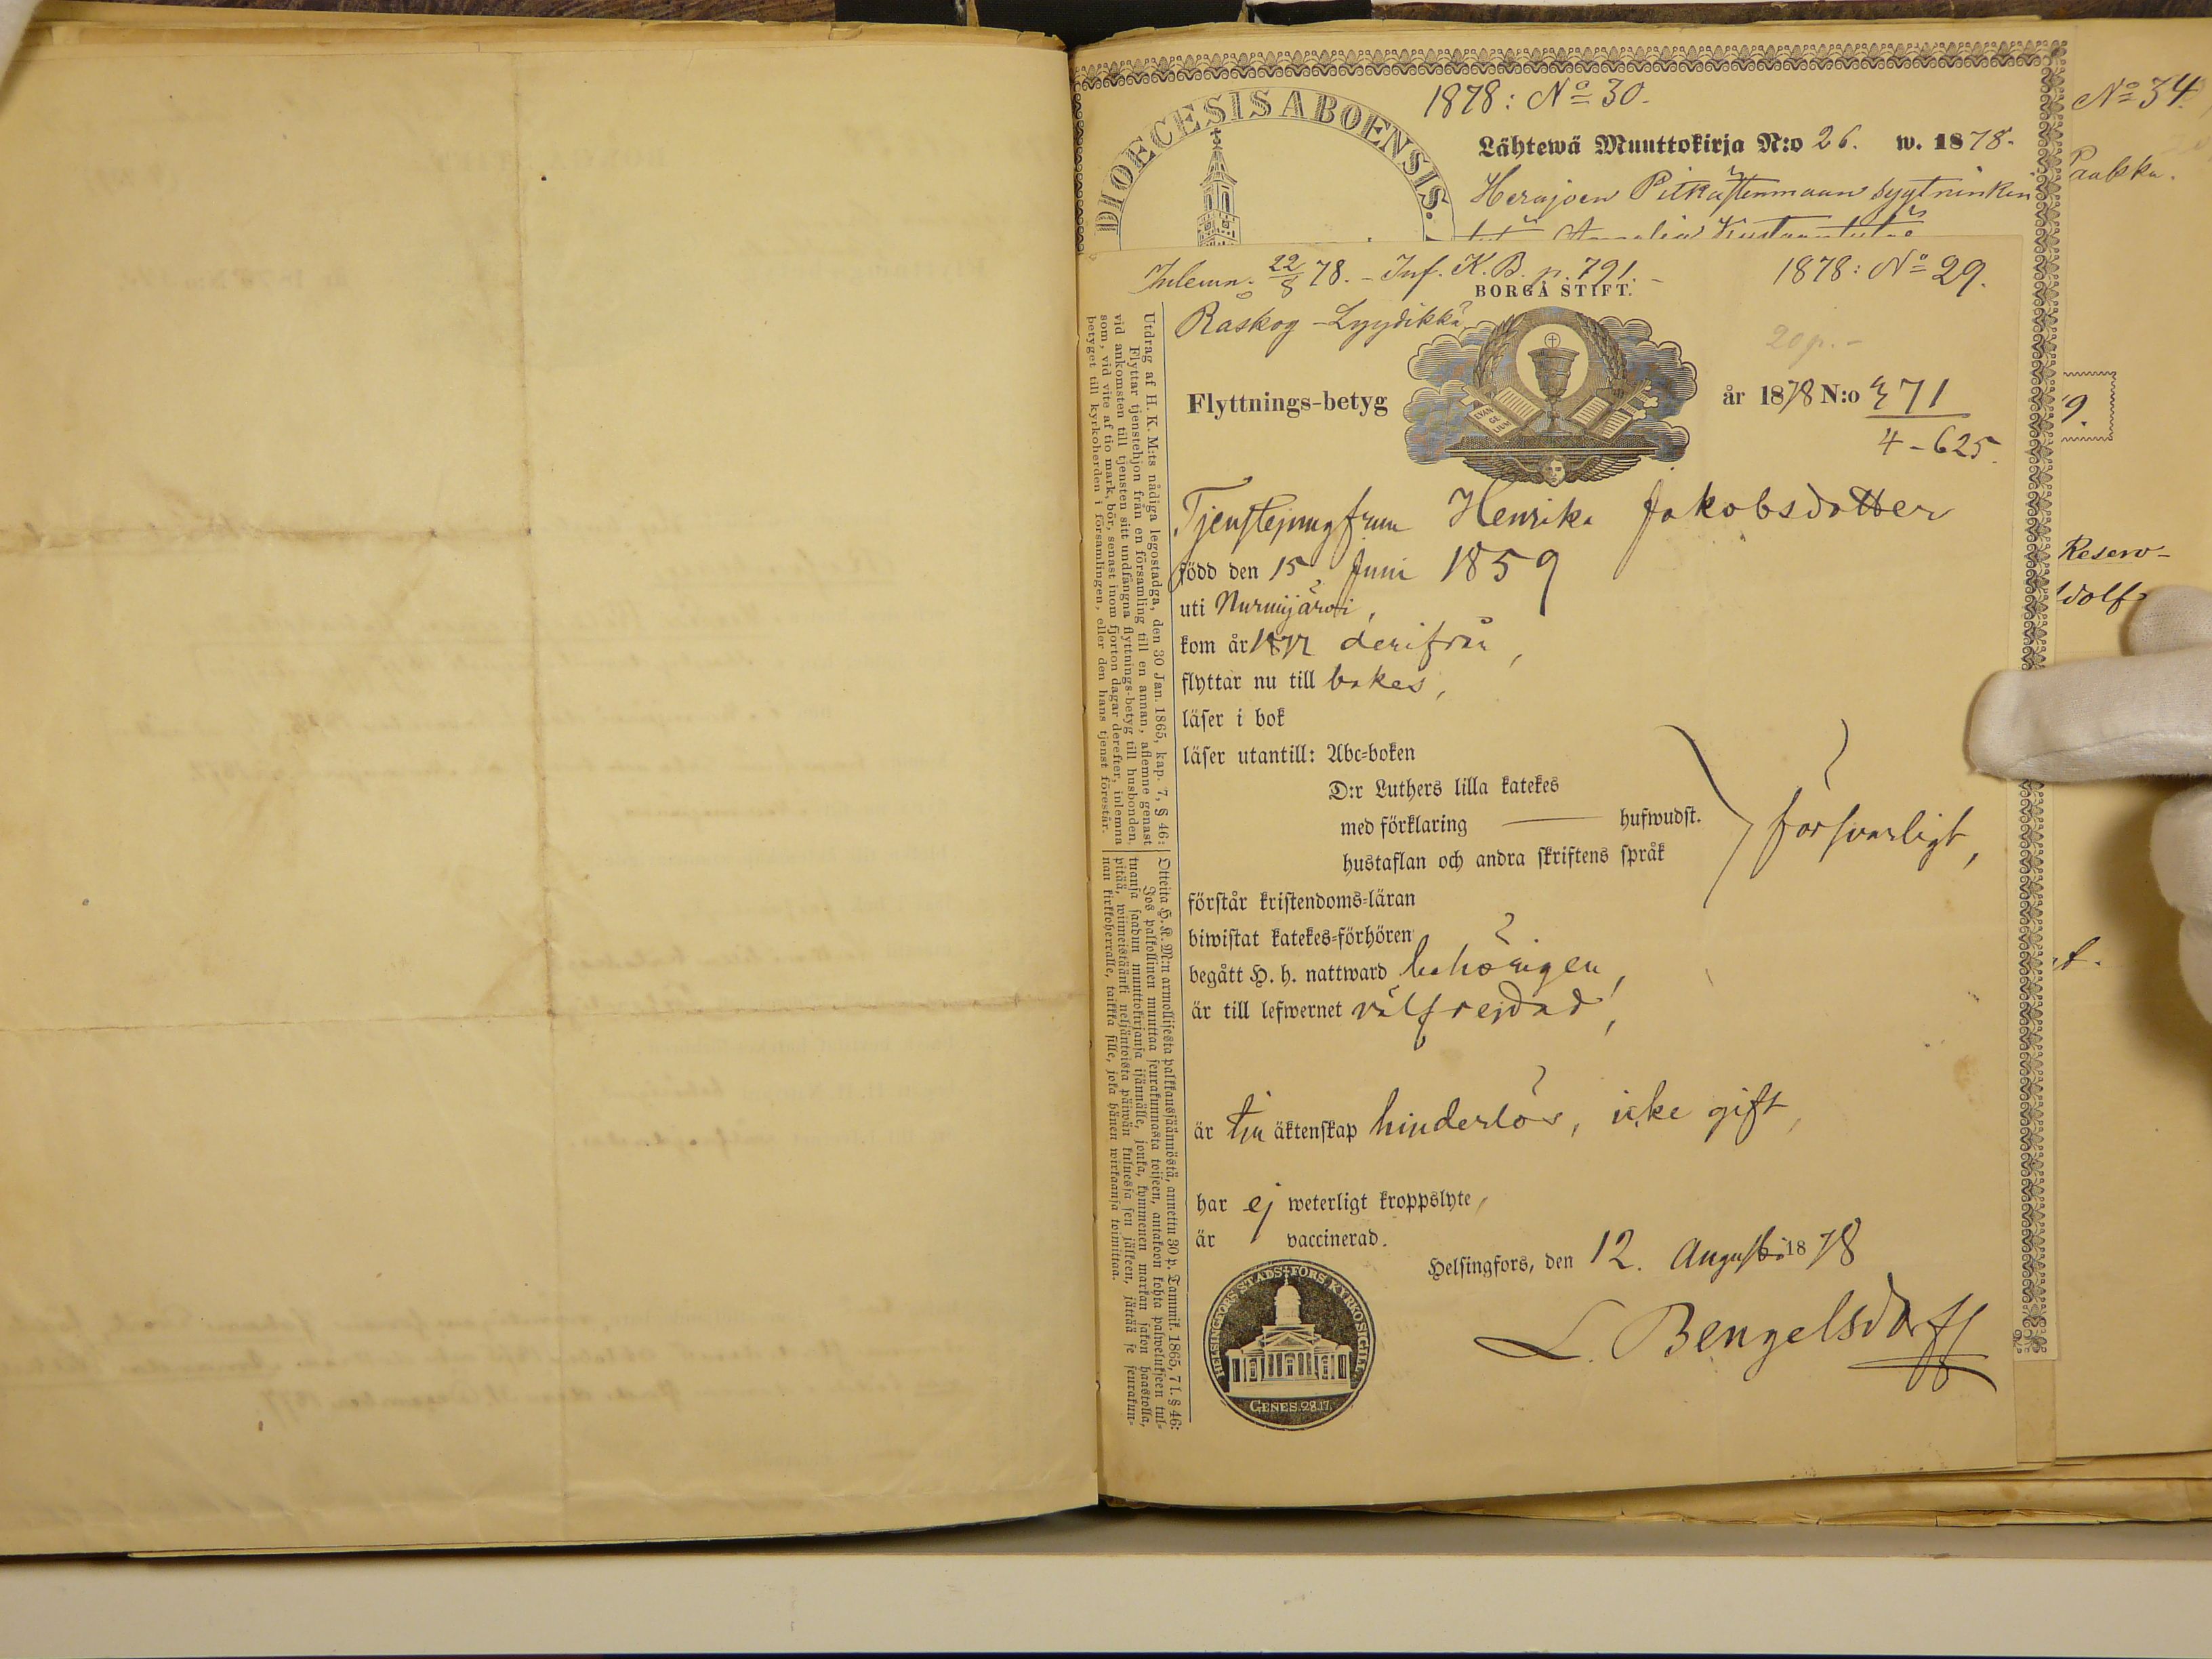 1878: No 30.
DIOECESIS ABOENSIS.
Lähtewä Muuttokirja N:o 26. w. 1878.
Herajoen
No 34.
Paakka.
Inlemn. 22/8 78. - Inf. K. B. p. 791. -
1878: No 29.
BORGÅ STIFT.
Raskog - Lyydikkä
20 p. -
EVANGELIUM
Flyttnings-betyg
år 1878 N:o 371
4-625.
9.
Tjenstejungfrun Henrika Jakobsdotter
född den 15 Juni 1859
uti Nurmijärvi,
kom år 1877 derifrån,
flyttar nu till bakes,
läser i bok
läser utantill: Abc-boken
D:r Luthers lilla katekes
med förklaring hufwudst.
hustaflan och andra skriftens språk
försvarligt,
förstår kristendoms-läran
biwistat katekes-förhören
begått H. h. nattward behörigen,
är till lefwernet välfrejdad,
är till äktenskap hinderlös, icke gift,
har ej weterligt kroppslyte,
är vaccinerad.
Helsingfors, den 12. Augusti 1878
L. Bengelsdorff
HELSINGFORS STADS FÖRS. KYRKOSIGILL
GENES. 28.17.
Reserv-
dolf
Utdrag af H. K. M:ts nådiga legostadga, den 30 Jan. 1865, kap. 7, § 46:
Flyttar tjenstehjon från en församling till en annan, aflemne genast
vid ankomsten till tjensten sitt undfångna flyttnings-betyg till husbonden,
som, vid vite af tio mark, bör, senast inom fjorton dagar derefter, inlemna
betyget till kyrkoherden i församlingen, eller den hans tjenst förestår.
Otteita H. K. M:n armollisesta palkkaussäännöstä, annettu 30 p. Tammik. 1865, 7 l. § 46:
Jos palkollinen muuttaa seurakunnasta toiseen, antakoon kohta palwelukseen tul-
tuansa saadun muuttokirjansa isännälle, jonka, kymmenen markan sakon haastolla,
pitää, wiimeistäänki neljäntoista päiwän kuluessa sen jälkeen, jättää se seurakun-
nan kirkkoherralle, taikka sille, joka hänen wirkaansa toimittaa.